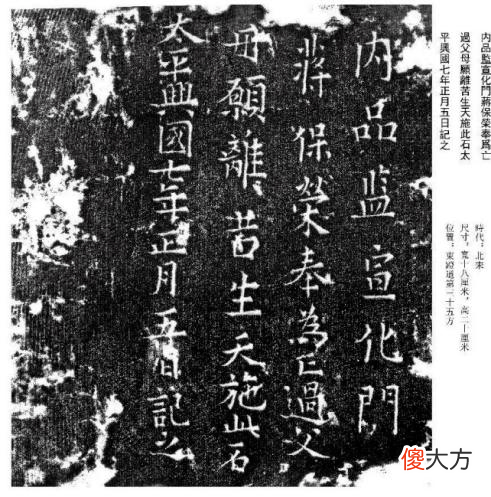 内品監宣化門蔣保榮奉爲亡
過父母願離苦生天施此石太
平興國七年正月五日記之
時代：北宋
尺寸：寬十八厘米，高二十厘米
位置：東蹬道第二十五方
内品监宣化門
蔣保榮奉為亡過父
母願離苦生天施此石
太平興國七年正月五日記之
傻大方